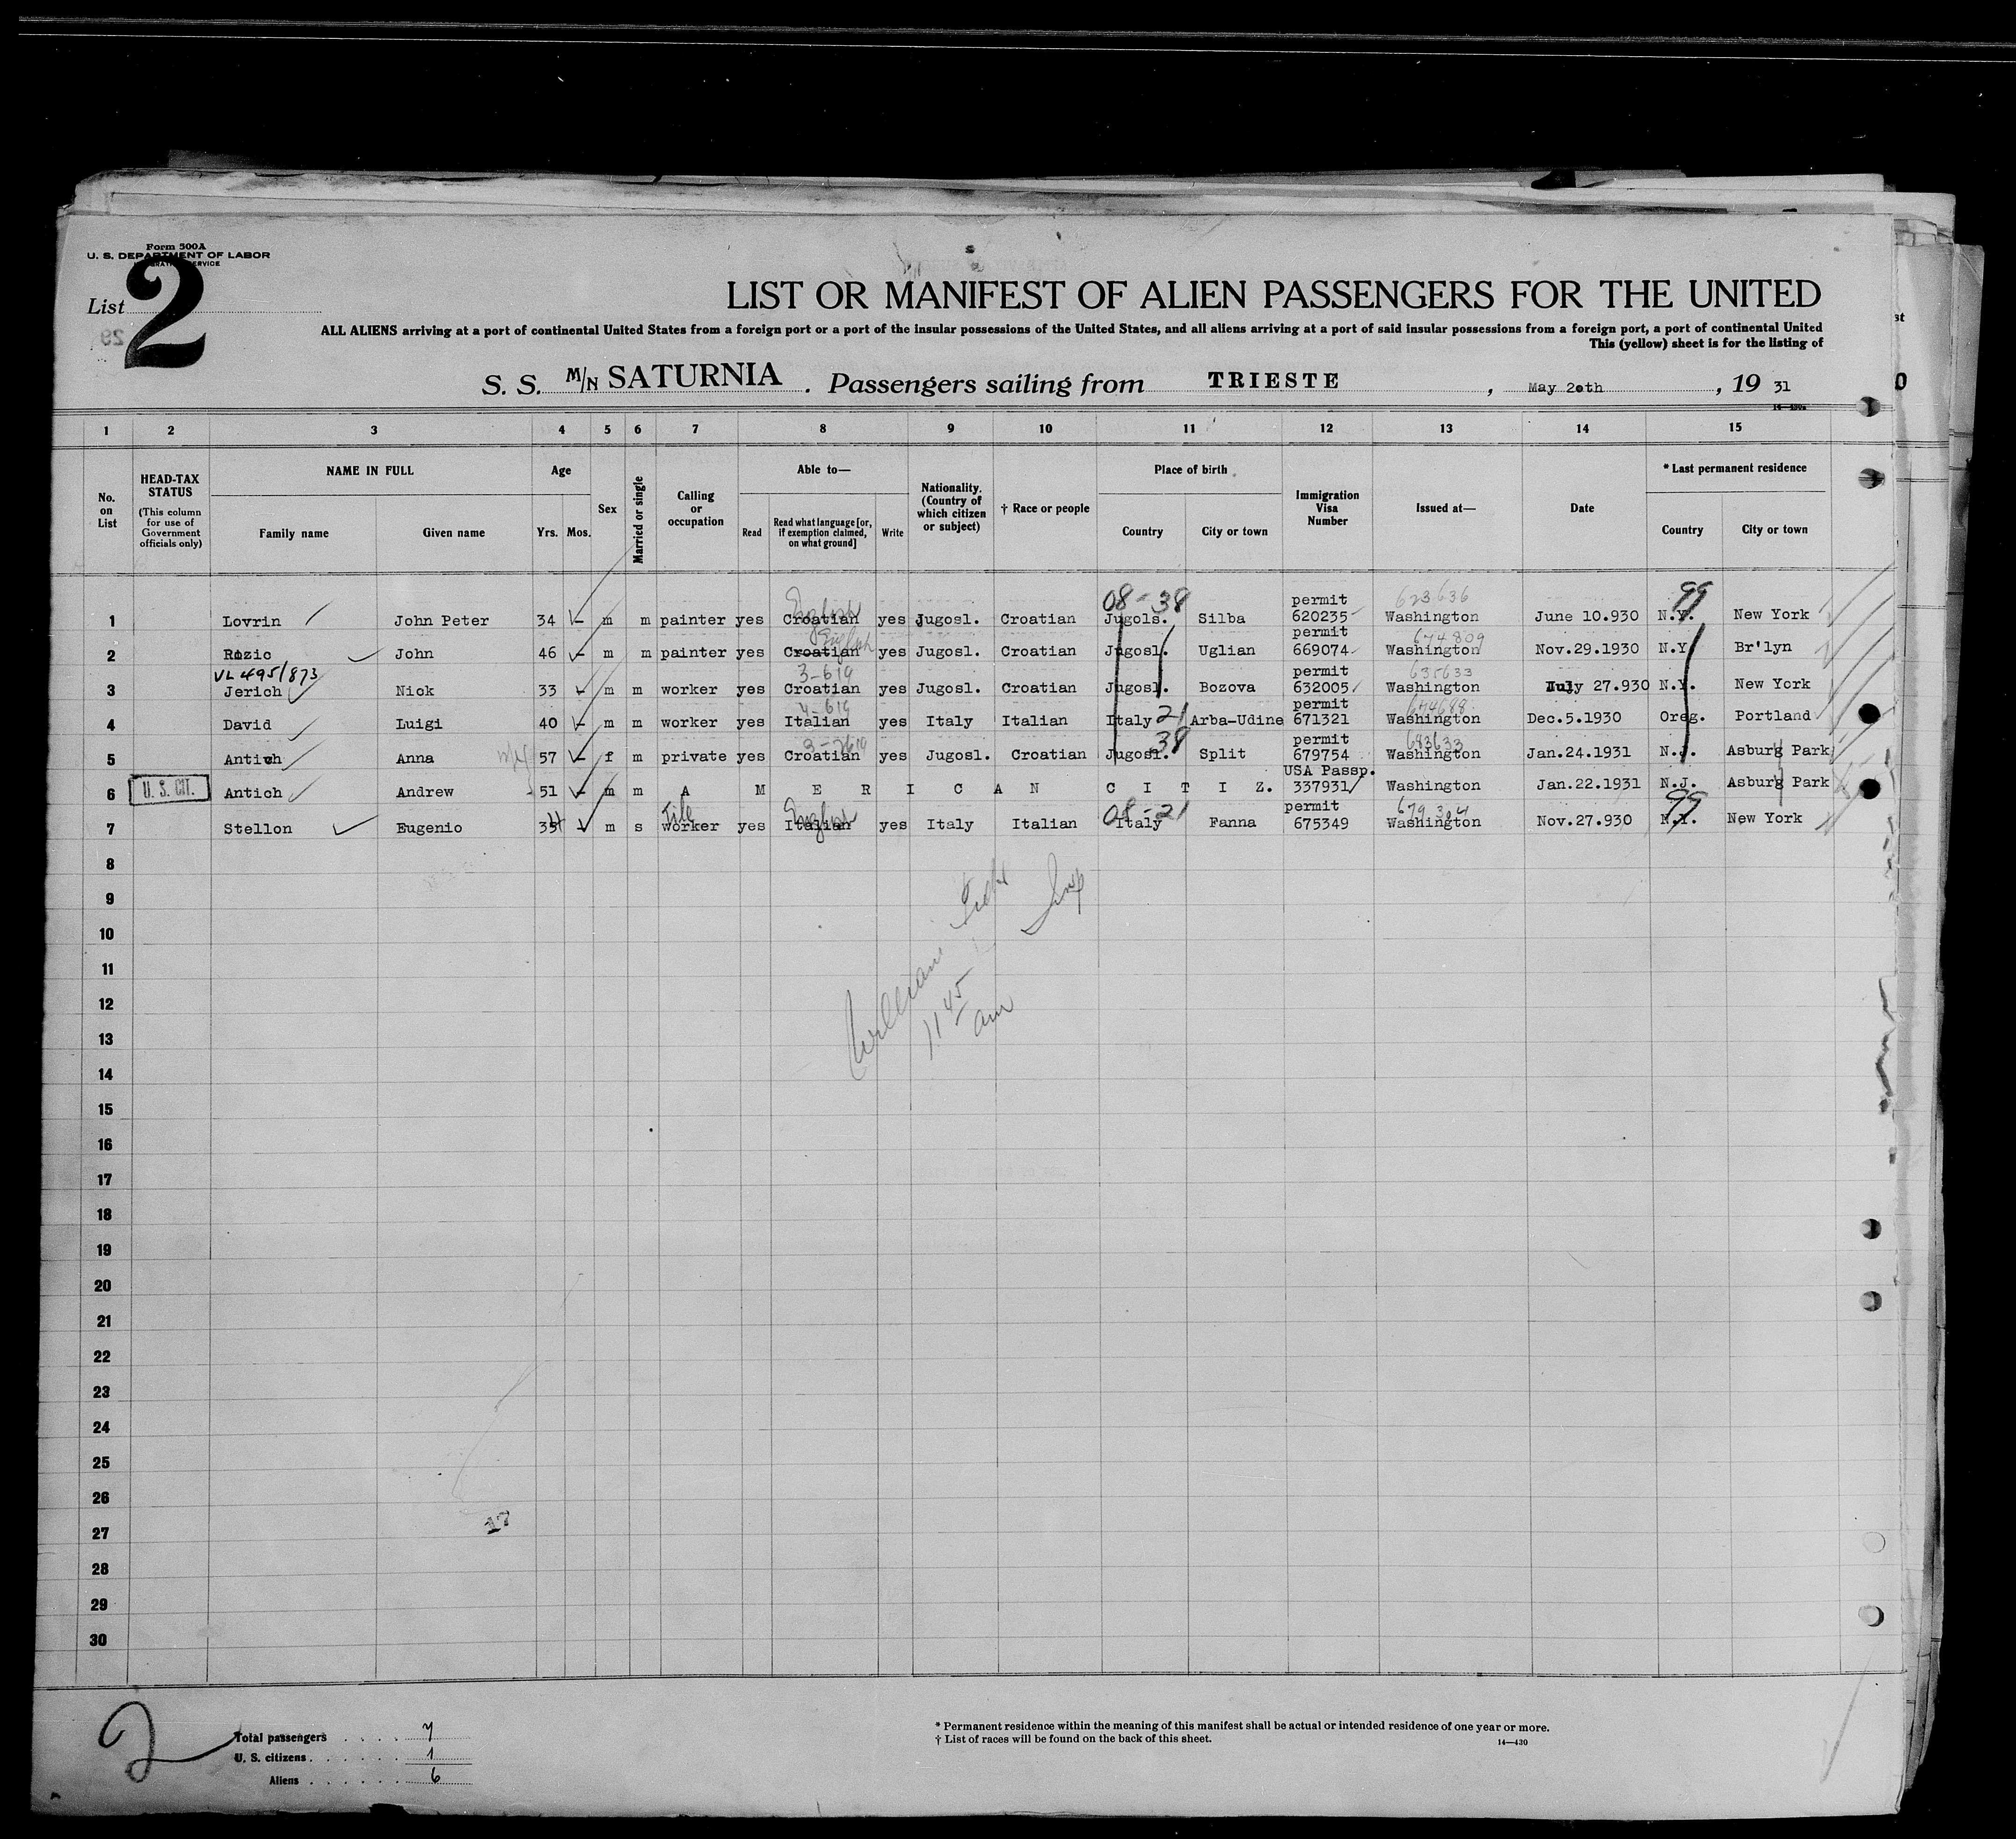 Form 500A
U. S. DEPARTMENT OF LABOR
List 2
LIST OR MANIFEST OF ALIEN PASSENGERS FOR THE UNITED
ALL ALIENS arriving at a port of continental United States from a foreign port or a port of the insular possessions of the United States, and all aliens arriving at a port of said insular possessions from a foreign port, a port of continental United
This (yellow) sheet is for the listing of
S. S. M/N SATURNIA. Passengers sailing from TRIESTE, May 2oth, 19 31
1 2 3 4 5 6 7 8 9 10 11 12 13 14 15
No. on List
HEAD-TAX STATUS (This column for use of Government officials only)
NAME IN FULL
Family name
Given name
Age
Yrs. Mos.
Sex
Married or single
Calling or occupation
Able to—
Read
Read what language [or, if exemption claimed, on what ground]
Write
Nationality. (Country of which citizen or subject)
† Race or people
Place of birth
Country
City or town
Immigration Visa Number
Issued at—
Date
* Last permanent residence
Country
City or town
English 08-38 permit 623636 99
1 Lovrin John Peter 34 m m painter yes Croatian yes Jugosl. Croatian Jugols. Silba 620235 Washington June 10.930 N.Y. New York
English permit 674809
2 Rozic John 46 m m painter yes Croatian yes Jugosl. Croatian Jugosl. Uglian 669074 Washington Nov.29.1930 N.Y. Br'lyn
VL 495/873 3-619 permit 635633
3 Jerich Nick 33 m m worker yes Croatian yes Jugosl. Croatian Jugosl. Bozova 632005 Washington July 27.930 N.Y. New York
4-619 permit 674688
4 David Luigi 40 m m worker yes Italian yes Italy Italian Italy 21 Arba-Udine 671321 Washington Dec.5.1930 Oreg. Portland
38 permit
5 Antich Anna 57 f m private yes Croatian yes Jugosl. Croatian Jugosl. Split 679754 Washington Jan.24.1931 N.J. Asburg Park
USA Passp.
6 U. S. CIT. Antich Andrew 51 m m A M E R I C A N C I T I Z. 337931 Washington Jan.22.1931 N.J. Asburg Park
Tile English 08-21 permit 99
7 Stellon Eugenio 34 m s worker yes Italian yes Italy Italian Italy Fanna 675349 Washington Nov.27.930 N.Y. New York
8
9
10
11
12
13
14
15
16
17
18
19
20
21
22
23
24
25
26
27
28
29
30
11 45 am
17
2
Total passengers 7
U. S. citizens 1
Aliens 6
* Permanent residence within the meaning of this manifest shall be actual or intended residence of one year or more.
† List of races will be found on the back of this sheet.
14—430